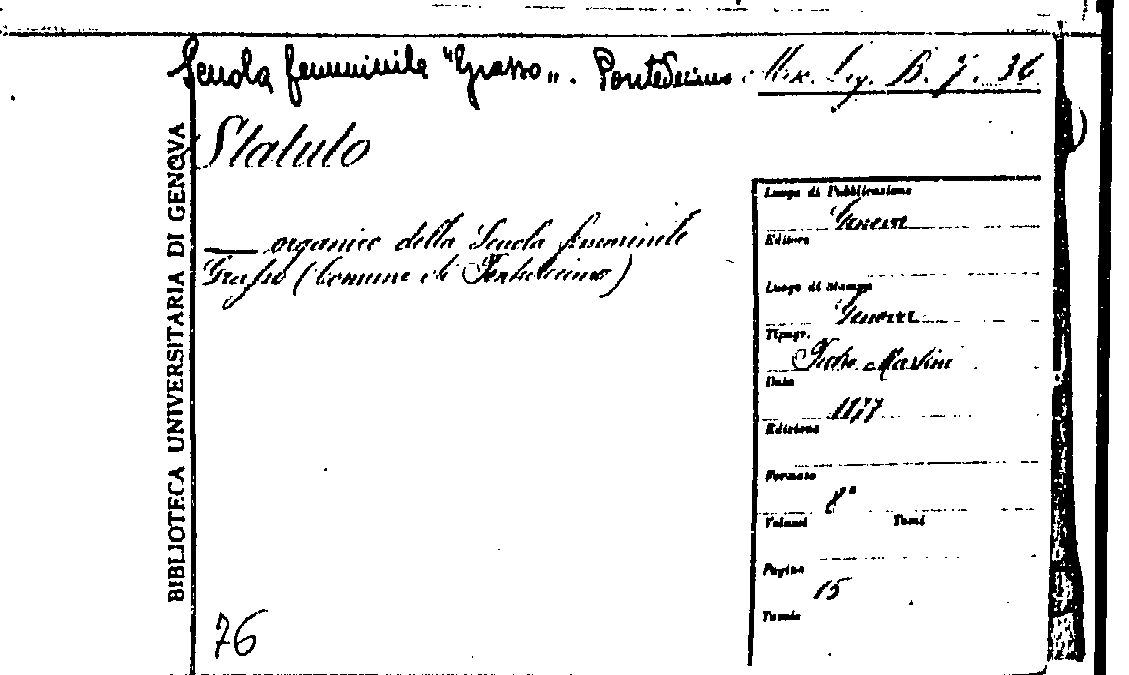 Scuola femminile "Grasso". Pontedecimo. Misc. Lig. B. 7. 36
BIBLIOTECA UNIVERSITARIA DI GENOVA
Statuto
—— organico della Scuola femminile
Grasso (Comune di Pontedecimo)
Luogo di Pubblicazione
Genova
Editore
Luogo di Stampa
Genova
Tipogr.
Martini
Data
1877
Edizione
Formato
8°
Volumi Tomi
Pagine
15
Tavole
76